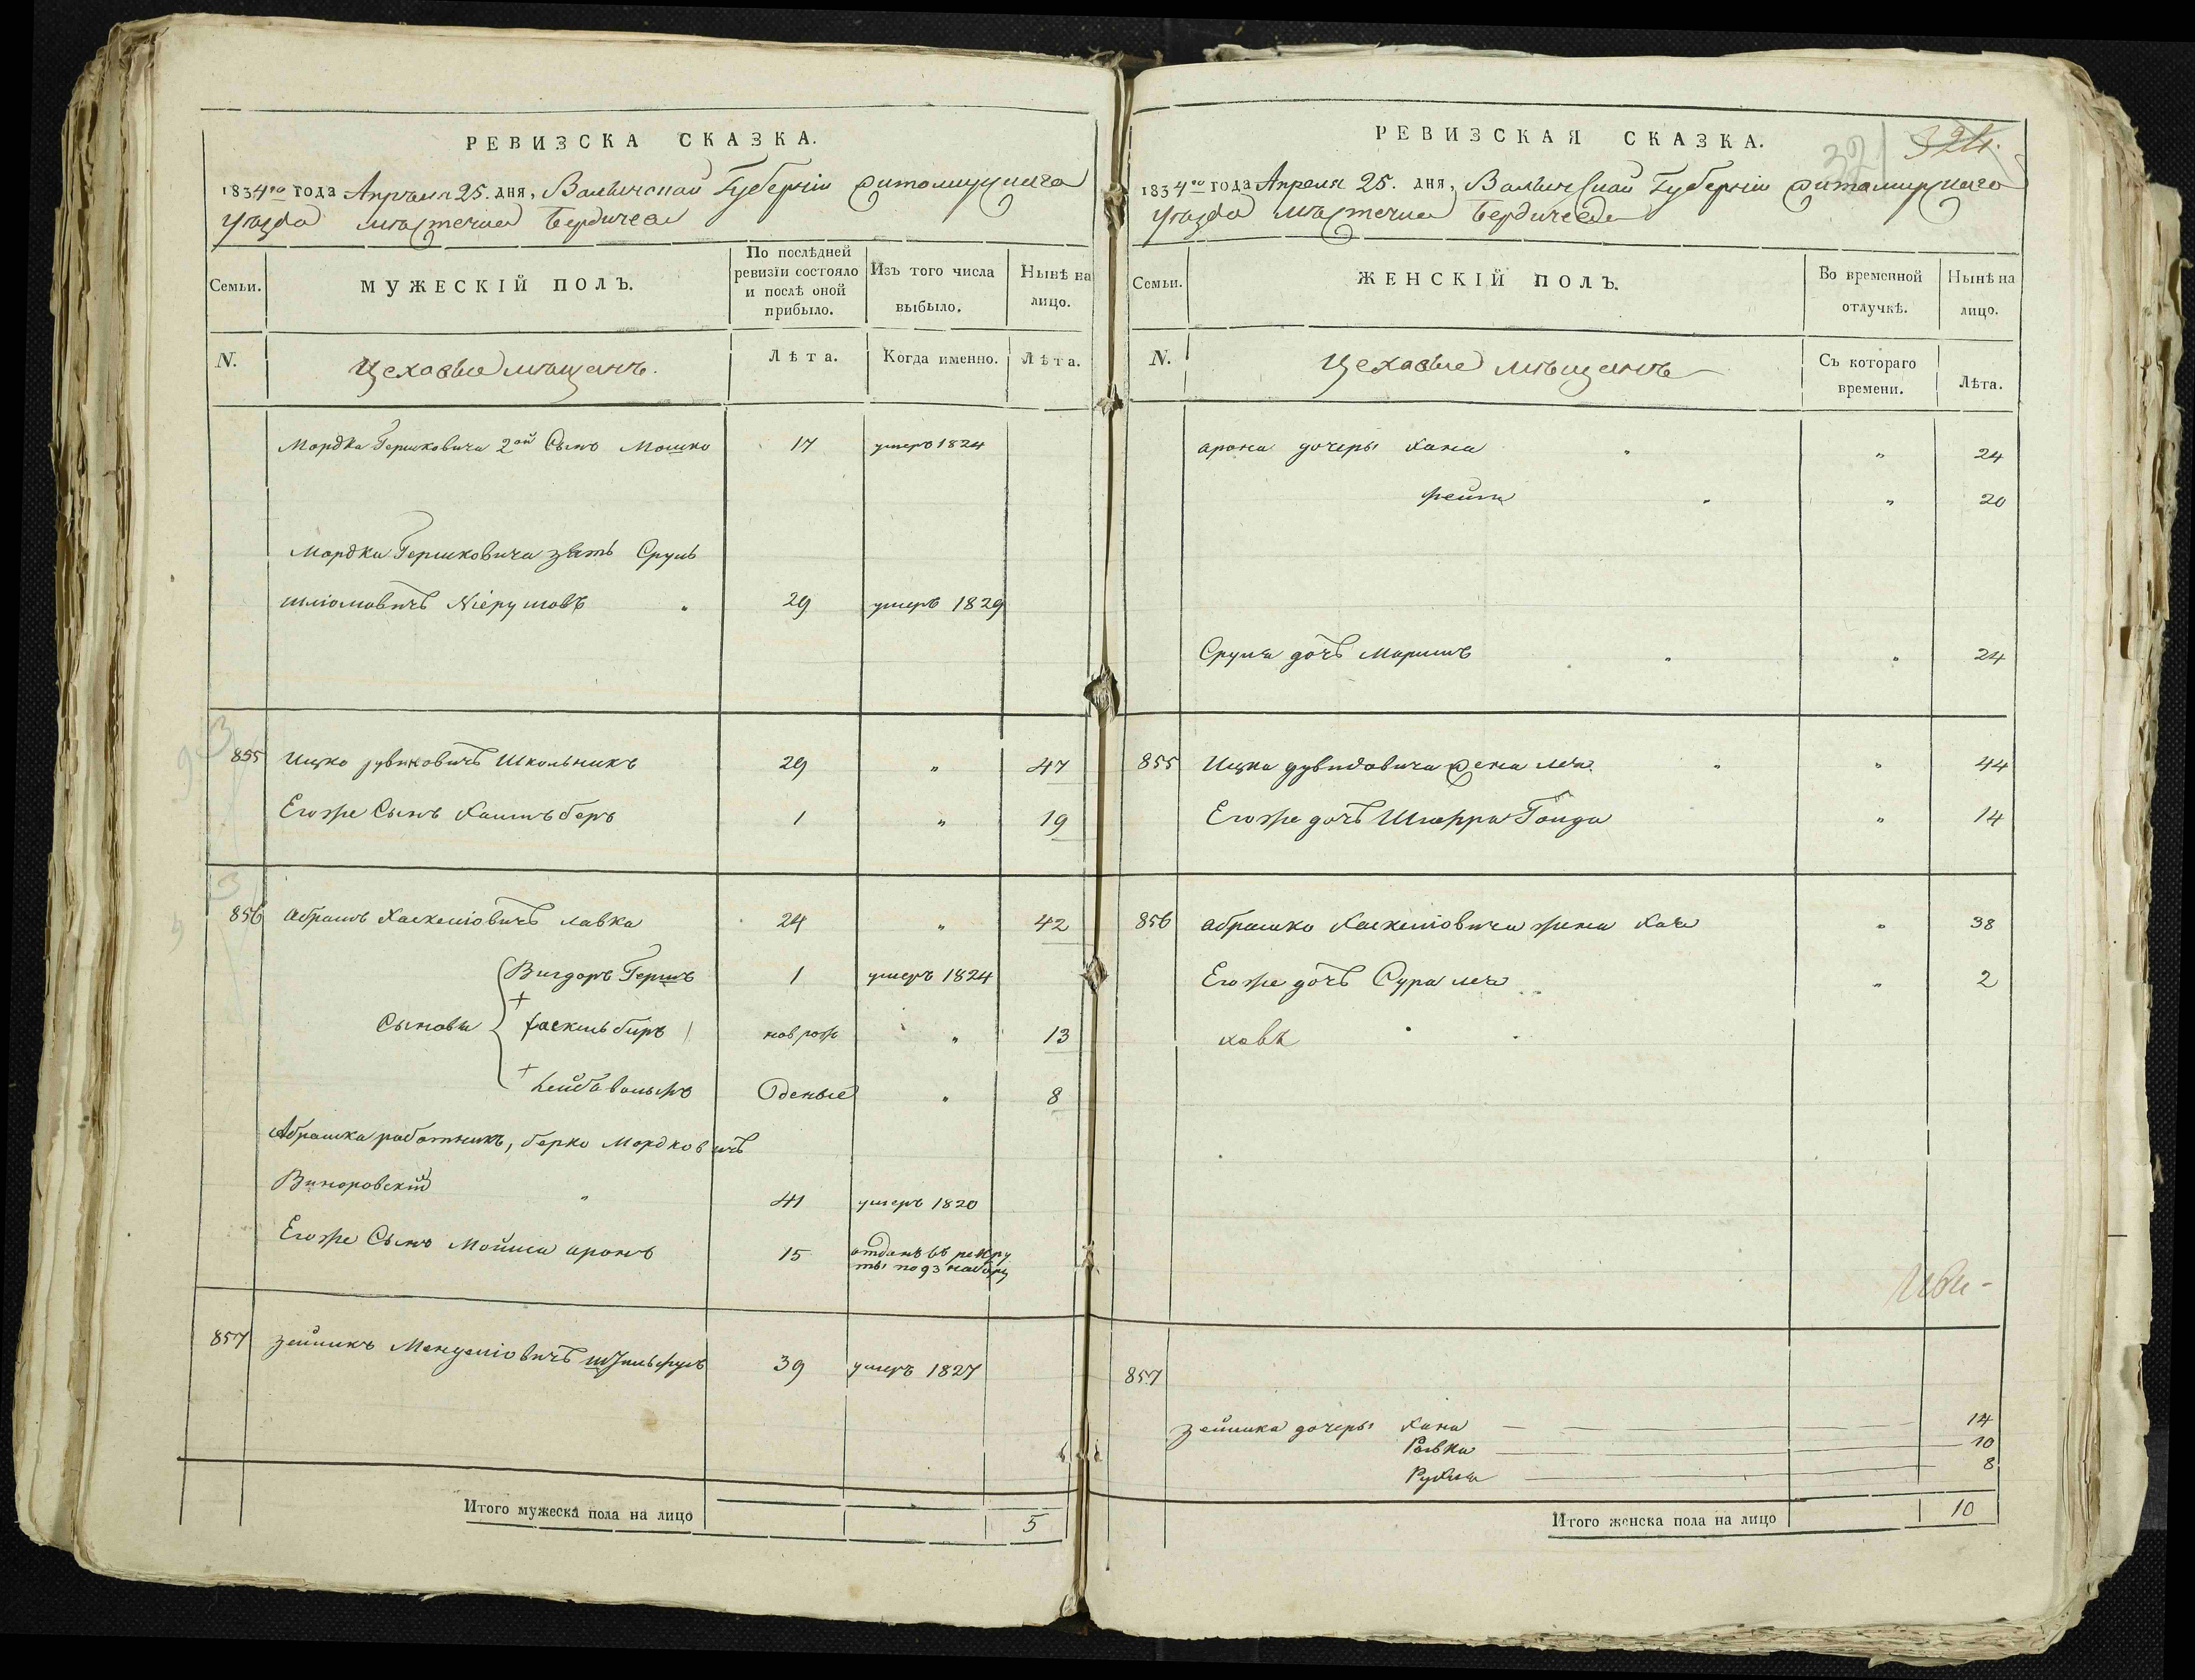 РЕВИЗСКА СКАЗКА.
1834го года Апреля 25. дня, Волынской Губернiи Житомирскаго
уезда местечка Бердичева
Семьи.
МУЖЕСКIЙ ПОЛЪ.
По послѣдней ревизiи состояло и послѣ оной прибыло.
Изъ того числа выбыло.
Нынѣ на лицо.
N.
Цеховые мещане.
Лѣта.
Когда именно.
Лѣта.
Мордка Гершковича 2ой Сынъ Мошко 17 умеръ 1824
Мордки Гершковича зять Сруль
шлiомовичъ 29 умеръ 1829
855 Ицко Школьникъ 29 " 47
Егоже Сынъ Хаимъ беръ 1 " 19
856 Абрамъ Хаскелiовичъ лавка 24 " 42
Вигдоръ Гершъ 1 умеръ 1824
Сыновья хаскель беръ новрож " 13
Лейба вольфъ Оденые " 8
Абрашка работникъ, берко Мордковичъ
Виноровскiй " 41 умеръ 1820
Егоже Сынъ аронъ 15 отданъ въ рекру
ты по 93 набору
857 Зейликъ Менделiовичъ 39 умеръ 1827
Итого мужеска пола на лицо 5
РЕВИЗСКАЯ СКАЗКА.
321
324.
1834го года Апреля 25. дня, Волынской Губернiи Житомирскаго
уезда местечка Бердичева
Семьи.
ЖЕНСКIЙ ПОЛЪ.
Во временной отлучкѣ.
Нынѣ на лицо.
N.
Цеховые мещане
Съ котораго времени.
Лѣта.
арона дочеры хана " " 24
фейга " " 20
Сруля дочъ " " 24
855 Ицка дувидовича жена лея " " 44
Егоже дочъ " 14
856 абрашко Хаскелiовича жена хая " 38
Егоже дочъ Сура лея " 2
857
Зейлика дочеры хана 14
Ривка 10
Рухля 8
Итого женска пола на лицо 10